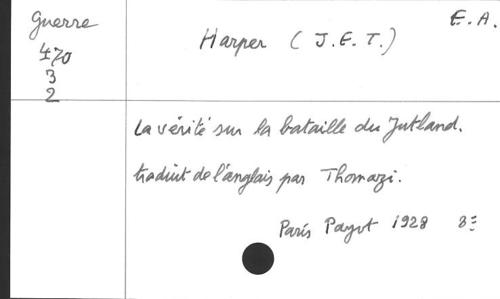 Guerre
470
3
2
Harper (J.E.T.)
E.A.
La vérité sur la bataille du Jutland.
traduit de l'anglais par Thomazi.
Paris Payot 1928 8º